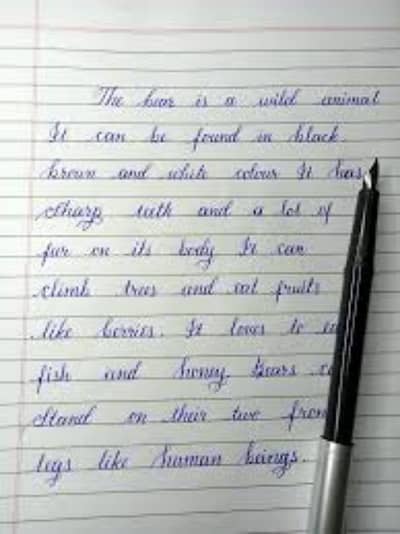 The bear is a wild animal
It can be found in black
brown and white colour It has
sharp teeth and a lot of
fur on its body It can
climb trees and eat fruits
like berries. It loves to
fish and honey Bears
stand on their two
legs like human beings.